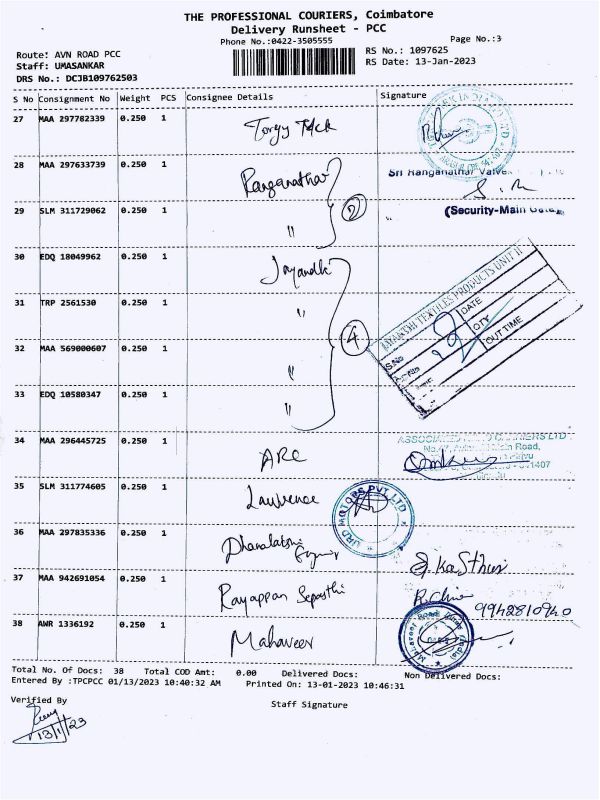 THE PROFESSIONAL COURIERS, Coimbatore
Delivery Runsheet - PCC
Phone No.:0422-3505555
Page No.:3
Route: AVN ROAD PCC
RS No.: 1097625
Staff: UMASANKAR
RS Date: 13-Jan-2023
DRS No.: DCJB109762503
S No Consignment No Weight PCS Consignee Details Signature
27 MAA 297782339 0.250 1
28 MAA 297633739 0.250 1 Ranganathar
Sri Ranganathar Valve
29 SLM 311729062 0.250 1 " 2
(Security-Main Gate)
30 EDQ 18049962 0.250 1
31 TRP 2561530 0.250 1 "
TEXTILES PRODUCTS UNIT II
S.No DATE
QTY
OUT TIME
32 MAA 569000607 0.250 1 " 4
33 EDQ 10580347 0.250 1 "
34 MAA 296445725 0.250 1 ARC
ASSOCIATED CARRIERS LTD
Road,
641407
35 SLM 311774605 0.250 1 Lawrence
URD MOTORS PVT LTD
36 MAA 297835336 0.250 1
37 MAA 942691054 0.250 1 Rayappan
9942810940
38 AWR 1336192 0.250 1 Mahaveer
Total No. Of Docs: 38 Total COD Amt: 0.00 Delivered Docs: Non Delivered Docs:
Entered By :TPCPCC 01/13/2023 10:40:32 AM Printed On: 13-01-2023 10:46:31
Verified By
Staff Signature
13/1/23